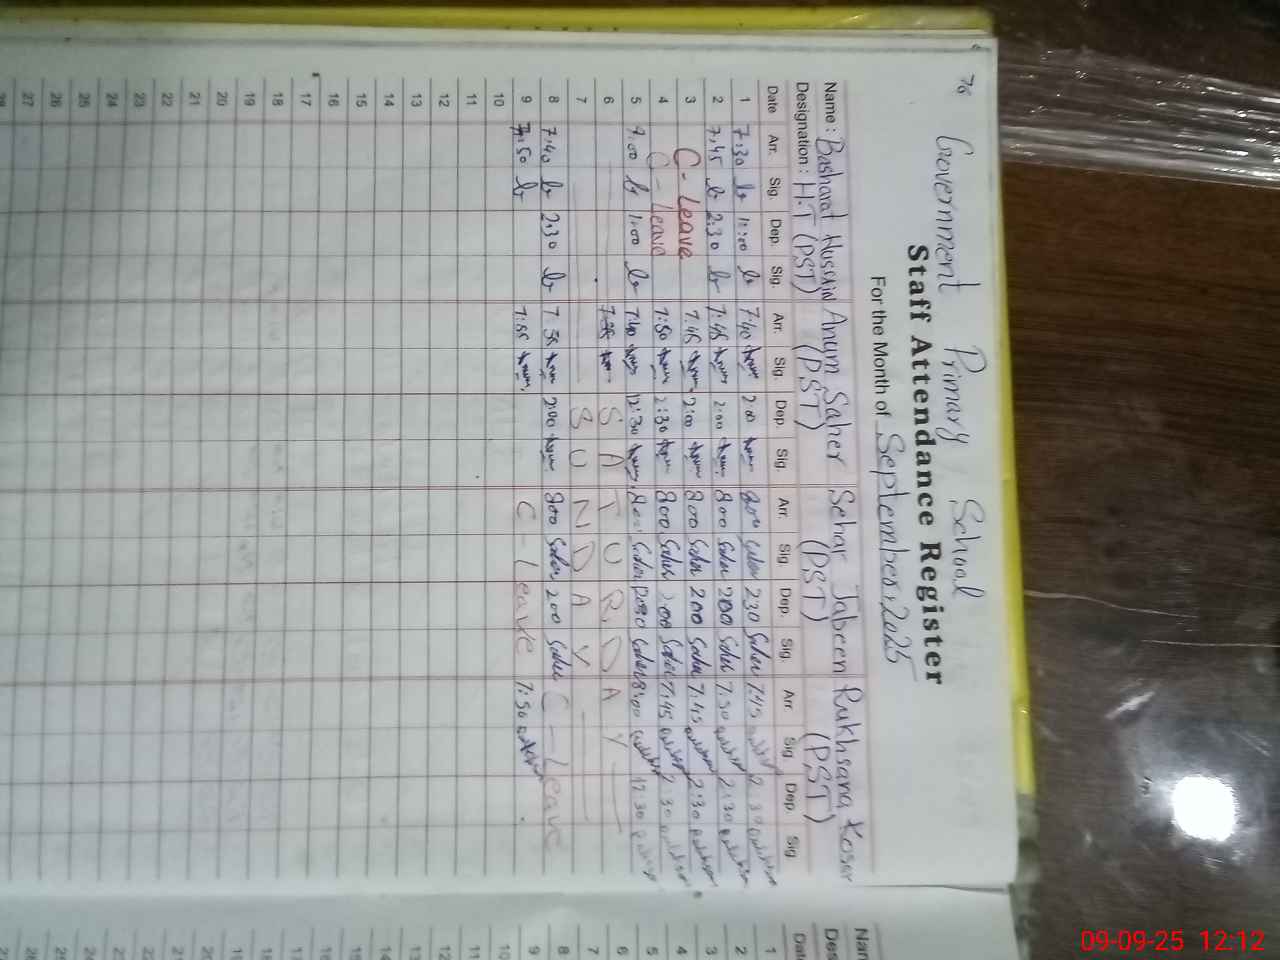 76
Government Primary School
Staff Attendance Register
For the Month of September, 2025
Name : Basharat Hussain Anum Saher Sehar Jabeen Rukhsana Kosar
Designation : H.T (PST) (PST) (PST) (PST)
Date Arr. Sig. Dep. Sig. Arr. Sig. Dep. Sig. Arr. Sig. Dep. Sig. Arr. Sig. Dep. Sig.
1 7:30 11:00 7:40 2:00 800 Saher 230 Saher 7:45
2 7:45 2:30 7:45 2:00 800 Saher 200 Saher 7:50 2:30
3 C - Leave 7:45 2:00 800 Saher 200 Saher 7:45 2:30
4 C - Leave 7:50 2:30 800 Saher 200 Saher 7:45 2:30
5 8:00 1:00 7:40 12:30 800 Saher 12:30 Saher 8:00 12:30
6 S A T U R D A Y
7 S U N D A Y
8 7:40 2:30 7:55 2:00 800 Saher 200 Saher C - Leave
9 7:50 7:55 C - Leave 7:50
10
11
12
13
14
15
16
17
18
19
20
21
22
23
24
25
26
27
28
Date
1
2
3
4
5
6
7
8
9
10
11
12
13
14
15
16
17
18
19
20
21
22
23
24
25
26
09-09-25 12:12